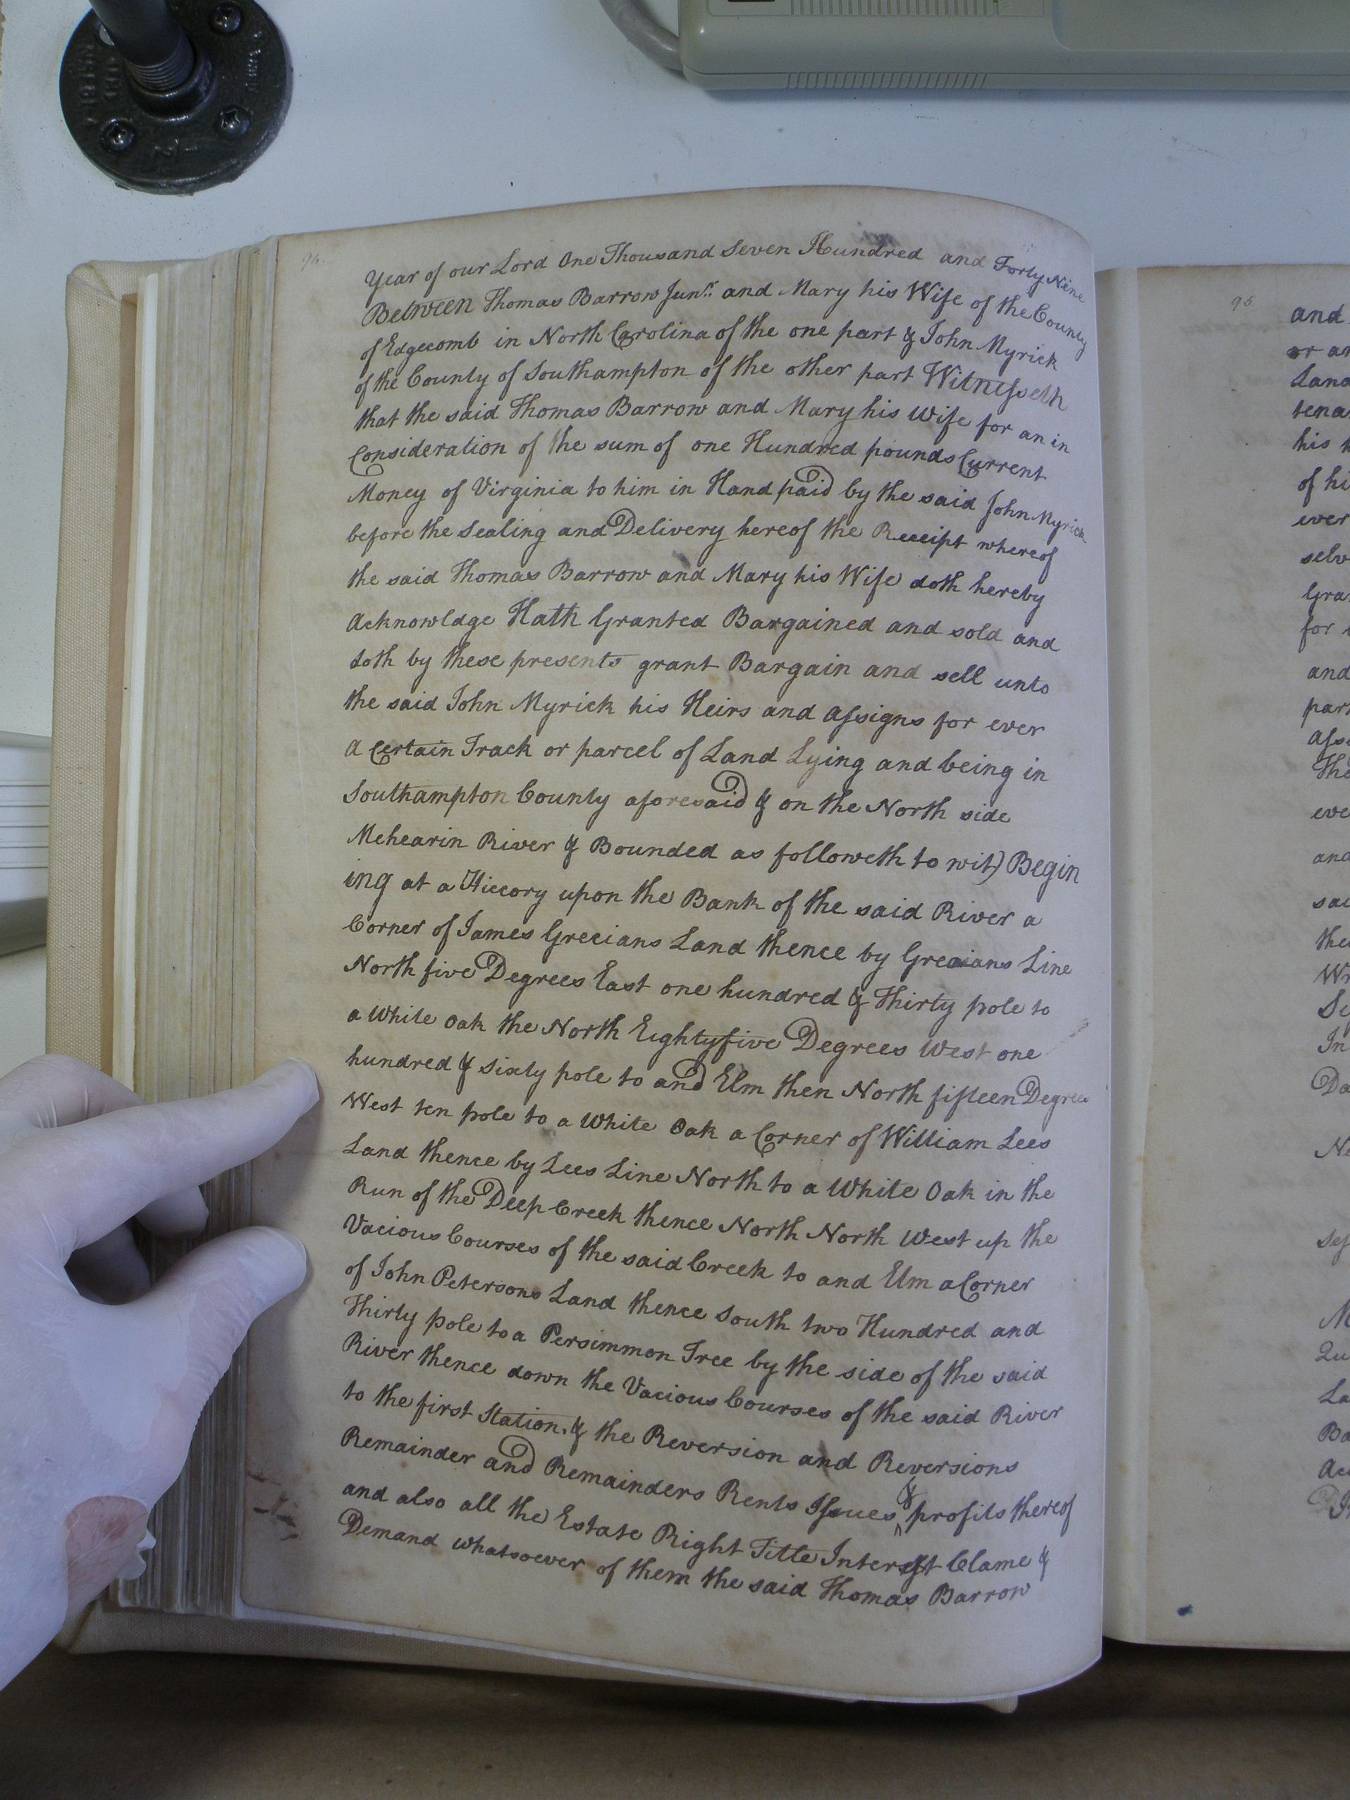 94
Year of our Lord One Thousand Seven Hundred and Forty Nine
Between Thomas Barrow Junr. and Mary his Wife of the County
of Edgecomb in North Carolina of the one part & John Myrick
of the County of Southampton of the other part Witnesseth
that the said Thomas Barrow and Mary his Wife for an in
Consideration of the sum of one Hundred pounds Current
Money of Virginia to him in Hand paid by the said John Myrick
before the Sealing and Delivery hereof the Receipt whereof
the said Thomas Barrow and Mary his Wife doth hereby
Acknowldge Hath Granted Bargained and sold and
doth by these presents grant Bargain and sell unto
the said John Myrick his Heirs and assigns for ever
a Certain Track or parcel of Land Lying and being in
Southampton County aforesaid & on the North side
Mehearin River & Bounded as followeth to wit) Begin
ing at a Hiccory upon the Bank of the said River a
Corner of James Grecians Land thence by Grecians Line
North five Degrees East one hundred & Thirty pole to
a White Oak the North Eightyfive Degrees West one
hundred & sixty pole to and Elm then North fifteen Degrees
West ten pole to a White Oak a Corner of William Lees
Land thence by Lees Line North to a White Oak in the
Run of the Deep Creek thence North North West up the
Vacious Courses of the said Creek to and Elm a Corner
of John Petersons Land thence South two Hundred and
Thirty pole to a Persimmon Tree by the side of the said
River thence down the Vacious Courses of the said River
to the first Station. & the Reversion and Reversions
Remainder and Remainders Rents Issues & profits thereof
and also all the Estate Right Title Interest Clame &
Demand whatsoever of them the said Thomas Barrow
95
and
or
Land
his
of
ever
for
and
ever
and
the
In